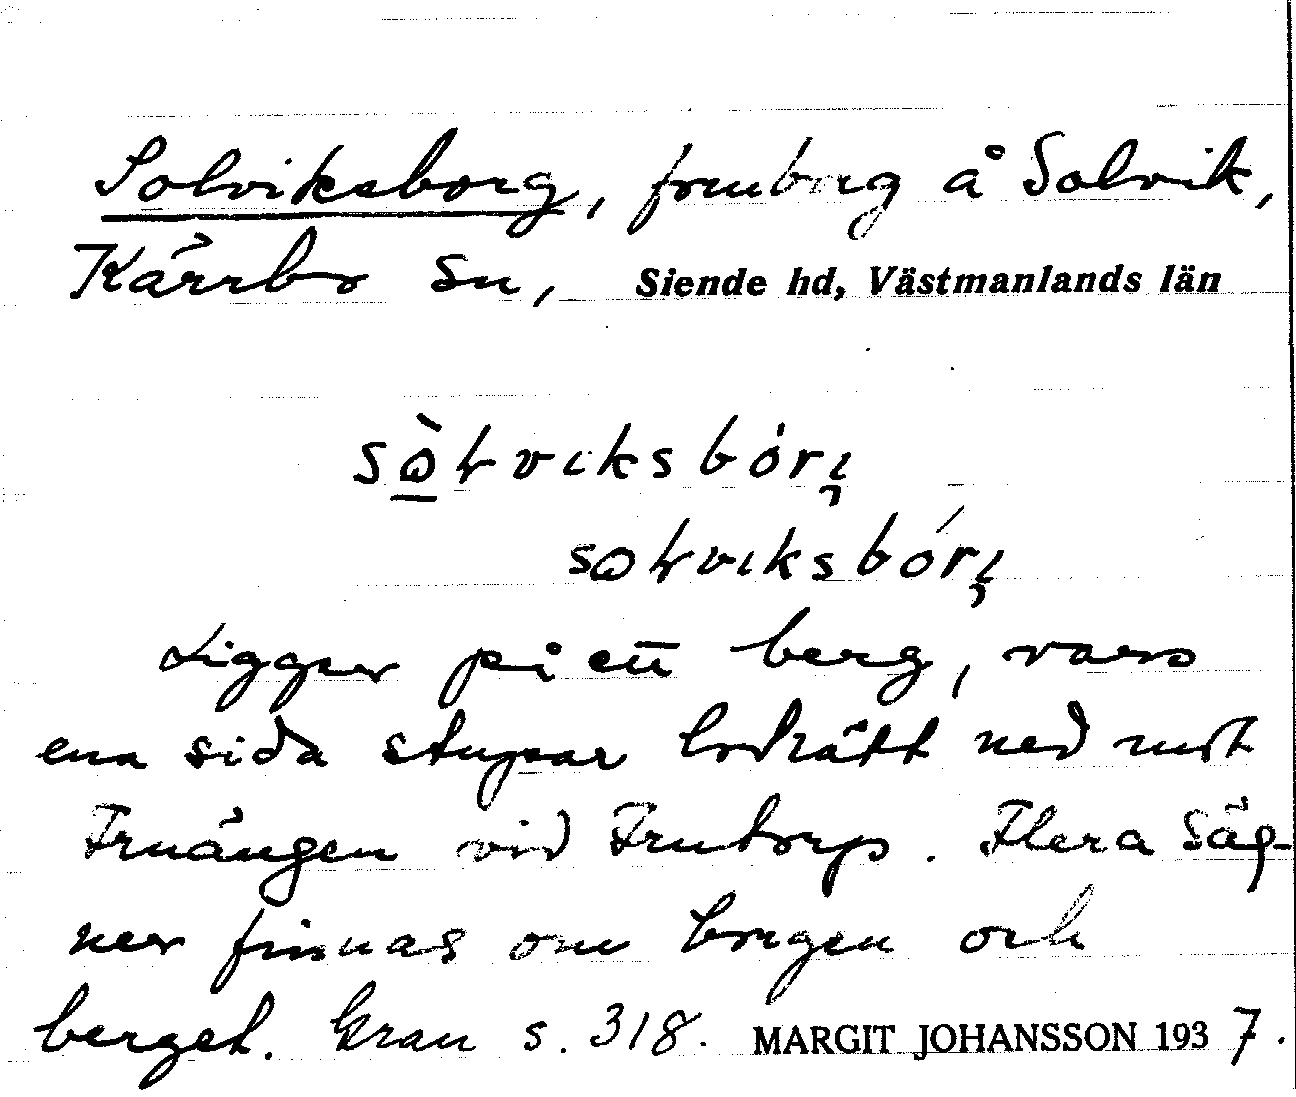 Solviksborg, fornborg å Solvik,
Kärrbo sn, Siende hd, Västmanlands län
Ligger på ett berg, vars
ena sida stupar lodrätt ned mot
Fruängen vid Frutorp. Flera säg-
ner finnas om borgen och
berget. Gran s. 318. MARGIT JOHANSSON 1937.